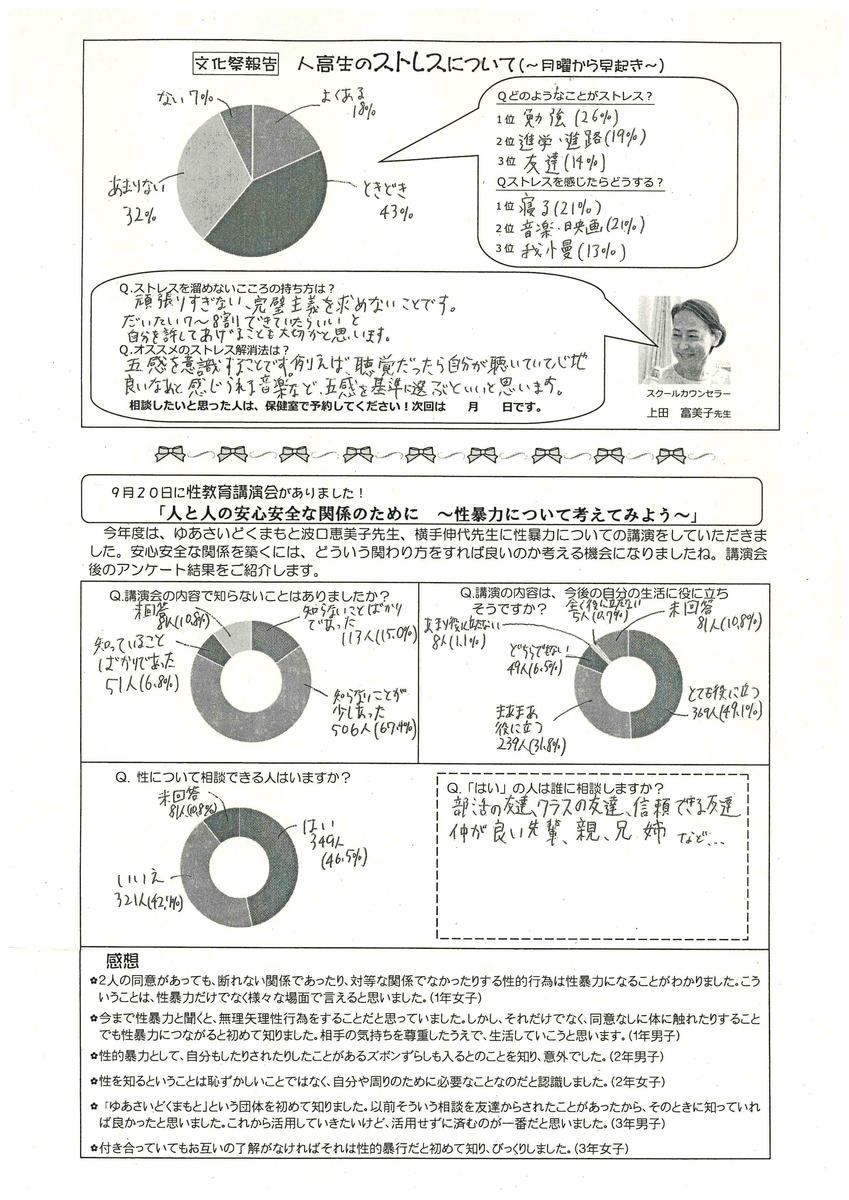 文化祭報告 人高生のストレスについて(～月曜から早起き～)
ない 7%
よくある
18%
あまりない
32%
ときどき
43%
Qどのようなことがストレス？
1位 勉強 (26%)
2位 進学・進路 (19%)
3位 友達 (14%)
Qストレスを感じたらどうする？
1位 寝る (21%)
2位 音楽・映画 (21%)
3位 我慢 (13%)
Q.ストレスを溜めないこころの持ち方は？
頑張りすぎない、完璧主義を求めないことです。
だいたい7～8割できていたらいいと
自分を許してあげることも大切かと思います。
Q.オススメのストレス解消法は？
五感を意識することです。例えば、聴覚だったら自分が聴いていて心地
良いなあと感じられる音楽など、五感を基準に選ぶといいと思います。
相談したいと思った人は、保健室で予約してください！次回は　月　日です。
スクールカウンセラー
上田　富美子先生
9月20日に性教育講演会がありました！
「人と人の安心安全な関係のために　～性暴力について考えてみよう～」
今年度は、ゆあさいどくまもと波口恵美子先生、横手仲代先生に性暴力についての講演をしていただきま
した。安心安全な関係を築くには、どういう関わり方をすれば良いのか考える機会になりましたね。講演会
後のアンケート結果をご紹介します。
Q.講演会の内容で知らないことはありましたか？
未回答
81人(10.8%)
知らないことばかり
であった
113人(15.0%)
知っていること
ばかりであった
51人(6.8%)
知らないことが
少しあった
506人(67.4%)
Q.講演の内容は、今後の自分の生活に役に立ち
そうですか？
全く役に立たない
5人(0.7%)
未回答
81人(10.8%)
あまり役に立たない
8人(1.1%)
どちらでもない
49人(6.5%)
とても役に立つ
369人(49.1%)
まあまあ
役に立つ
239人(31.8%)
Q. 性について相談できる人はいますか？
未回答
81人(10.8%)
はい
349人
(46.5%)
いいえ
321人(42.7%)
Q.「はい」の人は誰に相談しますか？
部活の友達、クラスの友達、信頼できる友達
仲が良い先輩、親、兄姉 など...
感想
✿2人の同意があっても、断れない関係であったり、対等な関係でなかったりする性的行為は性暴力になることがわかりました。こう
いうことは、性暴力だけでなく様々な場面で言えると思いました。(1年女子)
✿今まで性暴力と聞くと、無理矢理性行為をすることだと思っていました。しかし、それだけでなく、同意なしに体に触れたりすること
でも性暴力につながると初めて知りました。相手の気持ちを尊重したうえで、生活していこうと思います。(1年男子)
✿性的暴力として、自分もしたりされたりしたことがあるズボンずらしも入るとのことを知り、意外でした。(2年男子)
✿性を知るということは恥ずかしいことではなく、自分や周りのために必要なことなのだと認識しました。(2年女子)
✿「ゆあさいどくまもと」という団体を初めて知りました。以前そういう相談を友達からされたことがあったから、そのときに知っていれ
ば良かったと思いました。これから活用していきたいけど、活用せずに済むのが一番だと思いました。(3年男子)
✿付き合っていてもお互いの了解がなければそれは性的暴行だと初めて知り、びっくりしました。(3年女子)